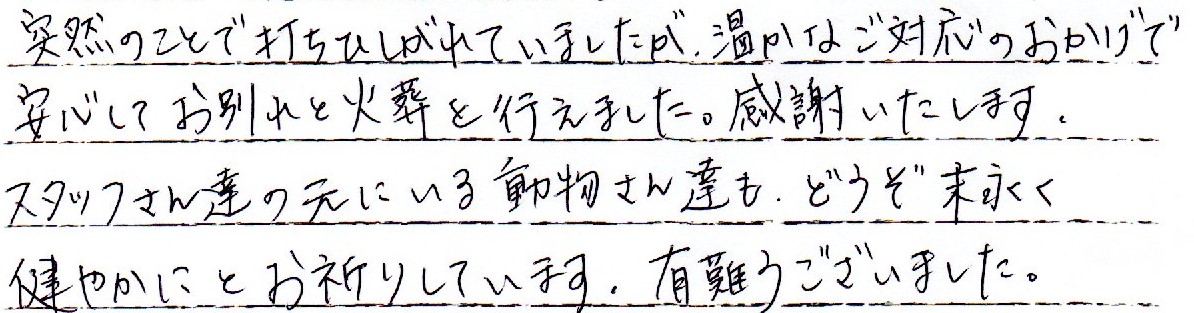 突然のことで打ちひしがれていましたが、温かなご対応のおかげで
安心してお別れと火葬を行えました。感謝いたします。
スタッフさん達の元にいる動物さん達も、どうぞ末永く
健やかにとお祈りしています。有難うございました。